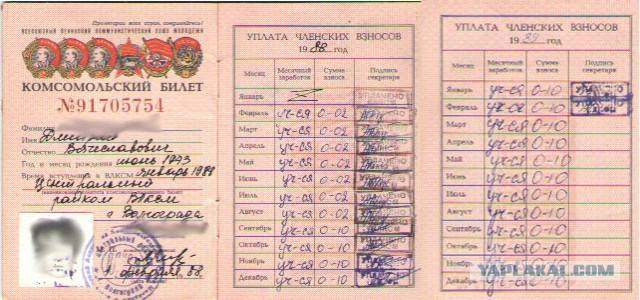 Пролетарии всех стран, соединяйтесь!
ВСЕСОЮЗНЫЙ ЛЕНИНСКИЙ КОММУНИСТИЧЕСКИЙ СОЮЗ МОЛОДЕЖИ
КОМСОМОЛЬСКИЙ БИЛЕТ
№91705754
Фамилия
Дмитрий
Отчество Вячеславович
Год и месяц рождения июнь 1973
Время вступления в ВЛКСМ январь 1988
Центральный
райком ВЛКСМ
г. Волгограда
февраля 88.
УПЛАТА ЧЛЕНСКИХ ВЗНОСОВ
1988 год
Месяц Месячный заработок Сумма взноса Подпись секретаря
Январь УПЛАЧЕНО
Февраль уч-ся 0-02
Март уч-ся 0-02 УПЛАЧЕНО
Апрель уч-ся 0-02
Май уч-ся 0-02 УПЛАЧЕНО
Июнь уч-ся 0-02
Июль уч-ся 0-02
Август уч-ся 0-02
Сентябрь уч-ся 0-10
Октябрь уч-ся 0-10
Ноябрь уч-ся 0-10
Декабрь уч-ся 0-10
УПЛАТА ЧЛЕНСКИХ ВЗНОСОВ
1989 год
Месяц Месячный заработок Сумма взноса Подпись секретаря
Январь уч-ся 0-10 УПЛАЧЕНО
Февраль уч-ся 0-10
Март уч-ся 0-10
Апрель уч-ся 0-10
Май уч-ся 0-10
Июнь уч-ся 0-10
Июль уч-ся 0-10
Август уч-ся 0-10
Сентябрь уч-ся 0-10
Октябрь уч-ся 0-10
Ноябрь уч-ся 0-10
Декабрь уч-ся 0-10
YAPLAKAL.COM